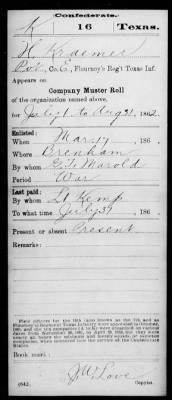 Confederate.
K 16 Texas.
H. Kraemer
Pvt, Co. E, Flournoy's Reg't Texas Inf.
Appears on
Company Muster Roll
of the organization named above,
for July 1 to Aug 31, 1862.
Enlisted:
When Mar 17, 186 .
Where Brenham
By whom G. F. Marold
Period War
Last paid:
By whom Lt. Kemp
To what time July 31, 186 .
Present or absent Present
Remarks:
Book mark:
(642) J W Love
Copyist.